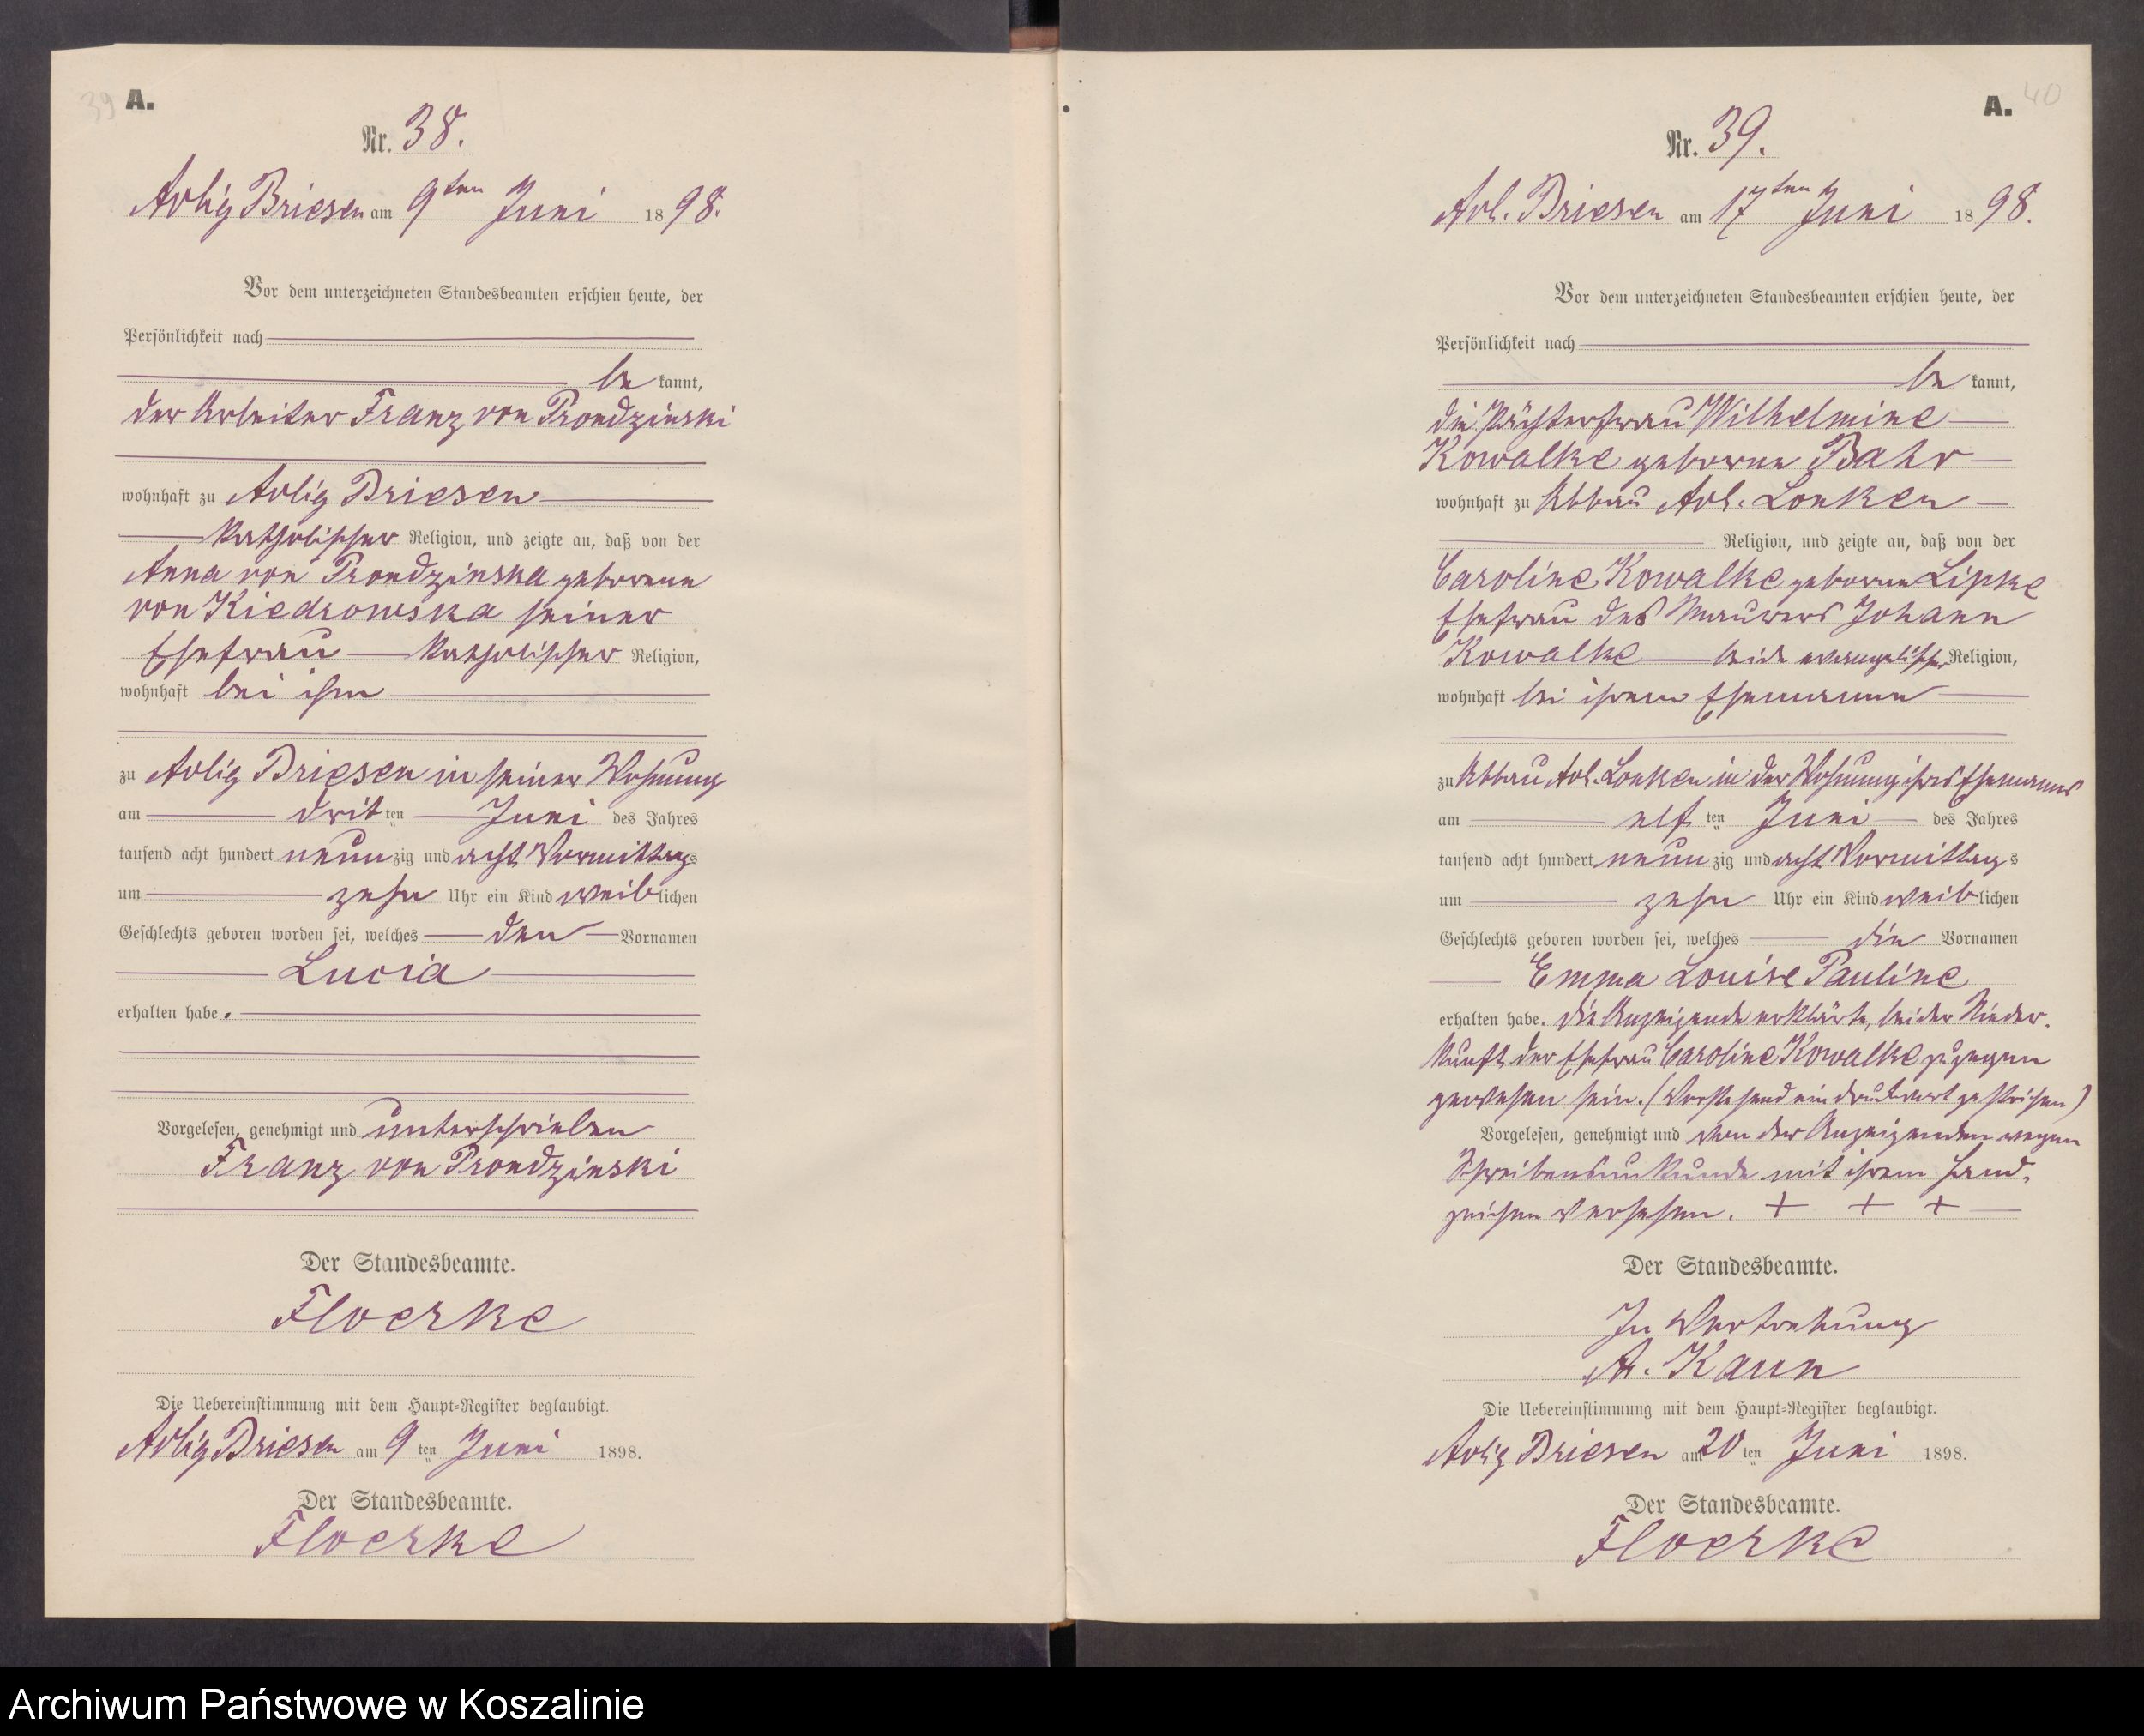 39 A.
Nr. 38.
Adlig Briesen am 9ten Juni 1898.
Vor dem unterzeichneten Standesbeamten erschien heute, der
Persönlichkeit nach
be kannt,
der Arbeiter Franz von Prondzinski
wohnhaft zu Adlig Briesen
katholischer Religion, und zeigte an, daß von der
Anna von Prondzinska geborenen
von Kiedrowska seiner
Ehefrau katholischer Religion,
wohnhaft bei ihm
zu Adlig Briesen in seiner Wohnung
am dritten Juni des Jahres
tausend acht hundert neunzig und acht Vormittags
um zehn Uhr ein Kind weiblichen
Geschlechts geboren worden sei, welches den Vornamen
Lucia
erhalten habe.
Vorgelesen, genehmigt und unterschrieben
Franz von Prondzinski
Der Standesbeamte.
Floerke
Die Uebereinstimmung mit dem Haupt-Register beglaubigt.
Adlig Briesen am 9ten Juni 1898.
Der Standesbeamte.
Floerke
A. 40
Nr. 39.
Adl. Briesen am 17ten Juni 1898.
Vor dem unterzeichneten Standesbeamten erschien heute, der
Persönlichkeit nach
be kannt,
die Pächterfrau Wilhelmine
Kowalke geborene Bahr
wohnhaft zu Abbau Adl. Lonken
Religion, und zeigte an, daß von der
Caroline Kowalke geborene Lipke
Ehefrau des Maurers Johann
Kowalke beide evangelischer Religion,
wohnhaft bei ihrem Ehemanne
zu Abbau Adl. Lonken in der Wohnung ihres Ehemannes
am elften Juni des Jahres
tausend acht hundert neunzig und acht Vormittags
um zehn Uhr ein Kind weiblichen
Geschlechts geboren worden sei, welches die Vornamen
Emma Louise Pauline
erhalten habe. Die Anzeigende erklärte, bei der Nieder-
kunft der Ehefrau Caroline Kowalke zugegen
gewesen sein. (Vorstehend ein Druckwort gestrichen)
Vorgelesen, genehmigt und von der Anzeigenden wegen
Schreibensunkunde mit ihrem Hand-
zeichen versehen. + + +
Der Standesbeamte.
In Vertretung
A. Kaun
Die Uebereinstimmung mit dem Haupt-Register beglaubigt.
Adlig Briesen am 20ten Juni 1898.
Der Standesbeamte.
Floerke
Archiwum Państwowe w Koszalinie